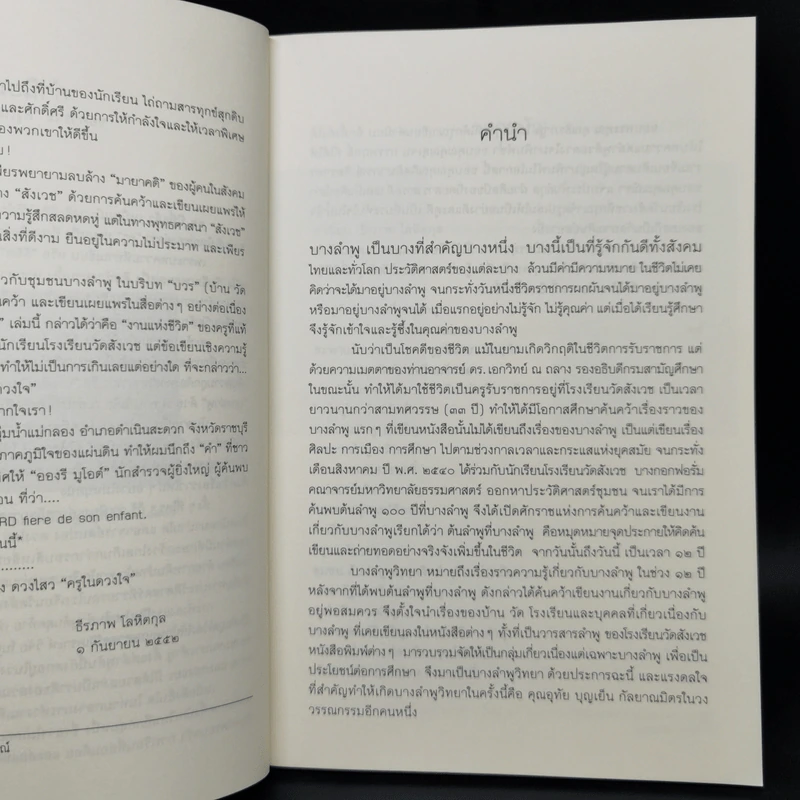 าไปถึงที่บ้านของนักเรียน ไถ่ถามสารทุกข์สุกดิบ
และศักดิ์ศรี ด้วยการให้กำลังใจและให้เวลาพิเศษ
องพวกเขาให้ดีขึ้น
ม !
พียรพยายามลบล้าง “มายาคติ” ของผู้คนในสังคม
าง “สังเวช” ด้วยการค้นคว้าและเขียนเผยแพร่ให้
ความรู้สึกสลดหดหู่ แต่ในทางพุทธศาสนา “สังเวช”
สิ่งที่ดีงาม ยืนอยู่ในความไม่ประมาท และเพียร
วกับชุมชนบางลำพู ในบริบท “บวร” (บ้าน วัด
นคว้า และเขียนเผยแพร่ในสื่อต่างๆ อย่างต่อเนื่อง
” เล่มนี้ กล่าวได้ว่าคือ “งานแห่งชีวิต” ของครูที่แท้
นักเรียนโรงเรียนวัดสังเวช แต่ข้อเขียนเชิงความรู้
ทำให้ไม่เป็นการเกินเลยแต่อย่างใด ที่จะกล่าวว่า...
ดวงใจ”
ากใจเรา !
ลุ่มน้ำแม่กลอง อำเภอดำเนินสะดวก จังหวัดราชบุรี
ภาคภูมิใจของแผ่นดิน ทำให้ผมนึกถึง “คำ” ที่ชาว
ศให้ “อองรี มูโอต์” นักสำรวจผู้ยิ่งใหญ่ ผู้ค้นพบ
อน ที่ว่า....
RD fiere de son enfant.
นนี้*
..........
ง ดวงไสว “ครูในดวงใจ”
ธีรภาพ โลหิตกุล
๑ กันยายน ๒๕๕๒
ณ์
คำนำ
บางลำพู เป็นบางที่สำคัญบางหนึ่ง บางนี้เป็นที่รู้จักกันดีทั้งสังคม
ไทยและทั่วโลก ประวัติศาสตร์ของแต่ละบาง ล้วนมีค่ามีความหมาย ในชีวิตไม่เคย
คิดว่าจะได้มาอยู่บางลำพู จนกระทั่งวันหนึ่งชีวิตราชการผกผันจนได้มาอยู่บางลำพู
หรือมาอยู่บางลำพูจนได้ เมื่อแรกอยู่อย่างไม่รู้จัก ไม่รู้คุณค่า แต่เมื่อได้เรียนรู้ศึกษา
จึงรู้จักเข้าใจและรู้ซึ้งในคุณค่าของบางลำพู
นับว่าเป็นโชคดีของชีวิต แม้ในยามเกิดวิกฤติในชีวิตการรับราชการ แต่
ด้วยความเมตตาของท่านอาจารย์ ดร.เอกวิทย์ ณ ถลาง รองอธิบดีกรมสามัญศึกษา
ในขณะนั้น ทำให้ได้มาใช้ชีวิตเป็นครูรับราชการอยู่ที่โรงเรียนวัดสังเวช เป็นเวลา
ยาวนานกว่าสามทศวรรษ (๓๓ ปี) ทำให้ได้มีโอกาสศึกษาค้นคว้าเรื่องราวของ
บางลำพู แรกๆ ที่เขียนหนังสือนั้นไม่ได้เขียนถึงเรื่องของบางลำพู เป็นแต่เขียนเรื่อง
ศิลปะ การเมือง การศึกษา ไปตามช่วงกาลเวลาและกระแสแห่งยุคสมัย จนกระทั่ง
เดือนสิงหาคม ปี พ.ศ. ๒๕๔๐ ได้ร่วมกับนักเรียนโรงเรียนวัดสังเวช บางกอกฟอรั่ม
คณาจารย์มหาวิทยาลัยธรรมศาสตร์ ออกหาประวัติศาสตร์ชุมชน จนเราได้มีการ
ค้นพบต้นลำพู ๑๐๐ ปีที่บางลำพู จึงได้เปิดศักราชแห่งการค้นคว้าและเขียนงาน
เกี่ยวกับบางลำพูเรียกได้ว่า ต้นลำพูที่บางลำพู คือหมุดหมายจุดประกายให้คิดค้น
เขียนและถ่ายทอดอย่างจริงจังเพิ่มขึ้นในชีวิต จากวันนั้นถึงวันนี้ เป็นเวลา ๑๒ ปี
บางลำพูวิทยา หมายถึงเรื่องราวความรู้เกี่ยวกับบางลำพู ในช่วง ๑๒ ปี
หลังจากที่ได้พบต้นลำพูที่บางลำพู ดังกล่าวได้ค้นคว้าเขียนงานเกี่ยวกับบางลำพู
อยู่พอสมควร จึงตั้งใจนำเรื่องของบ้าน วัด โรงเรียนและบุคคลที่เกี่ยวเนื่องกับ
บางลำพู ที่เคยเขียนลงในหนังสือต่างๆ ทั้งที่เป็นวารสารลำพู ของโรงเรียนวัดสังเวช
หนังสือพิมพ์ต่างๆ มารวบรวมจัดให้เป็นกลุ่มเกี่ยวเนื่องแต่เฉพาะบางลำพู เพื่อเป็น
ประโยชน์ต่อการศึกษา จึงมาเป็นบางลำพูวิทยา ด้วยประการฉะนี้ และแรงดลใจ
ที่สำคัญทำให้เกิดบางลำพูวิทยาในครั้งนี้คือ คุณอุทัย บุญเย็น กัลยาณมิตรในวง
วรรณกรรมอีกคนหนึ่ง